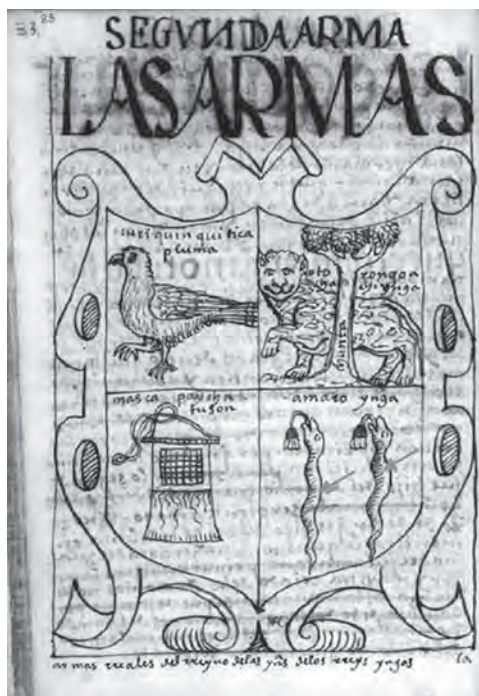 SEGVNDA ARMA
LAS ARMAS
curiquinqui tica
pluma
otorongo
achi ynga
chunta
masca paycha
tuson
amaro ynga
armas rreales del rreyno de las yns de los rreys yngas
la